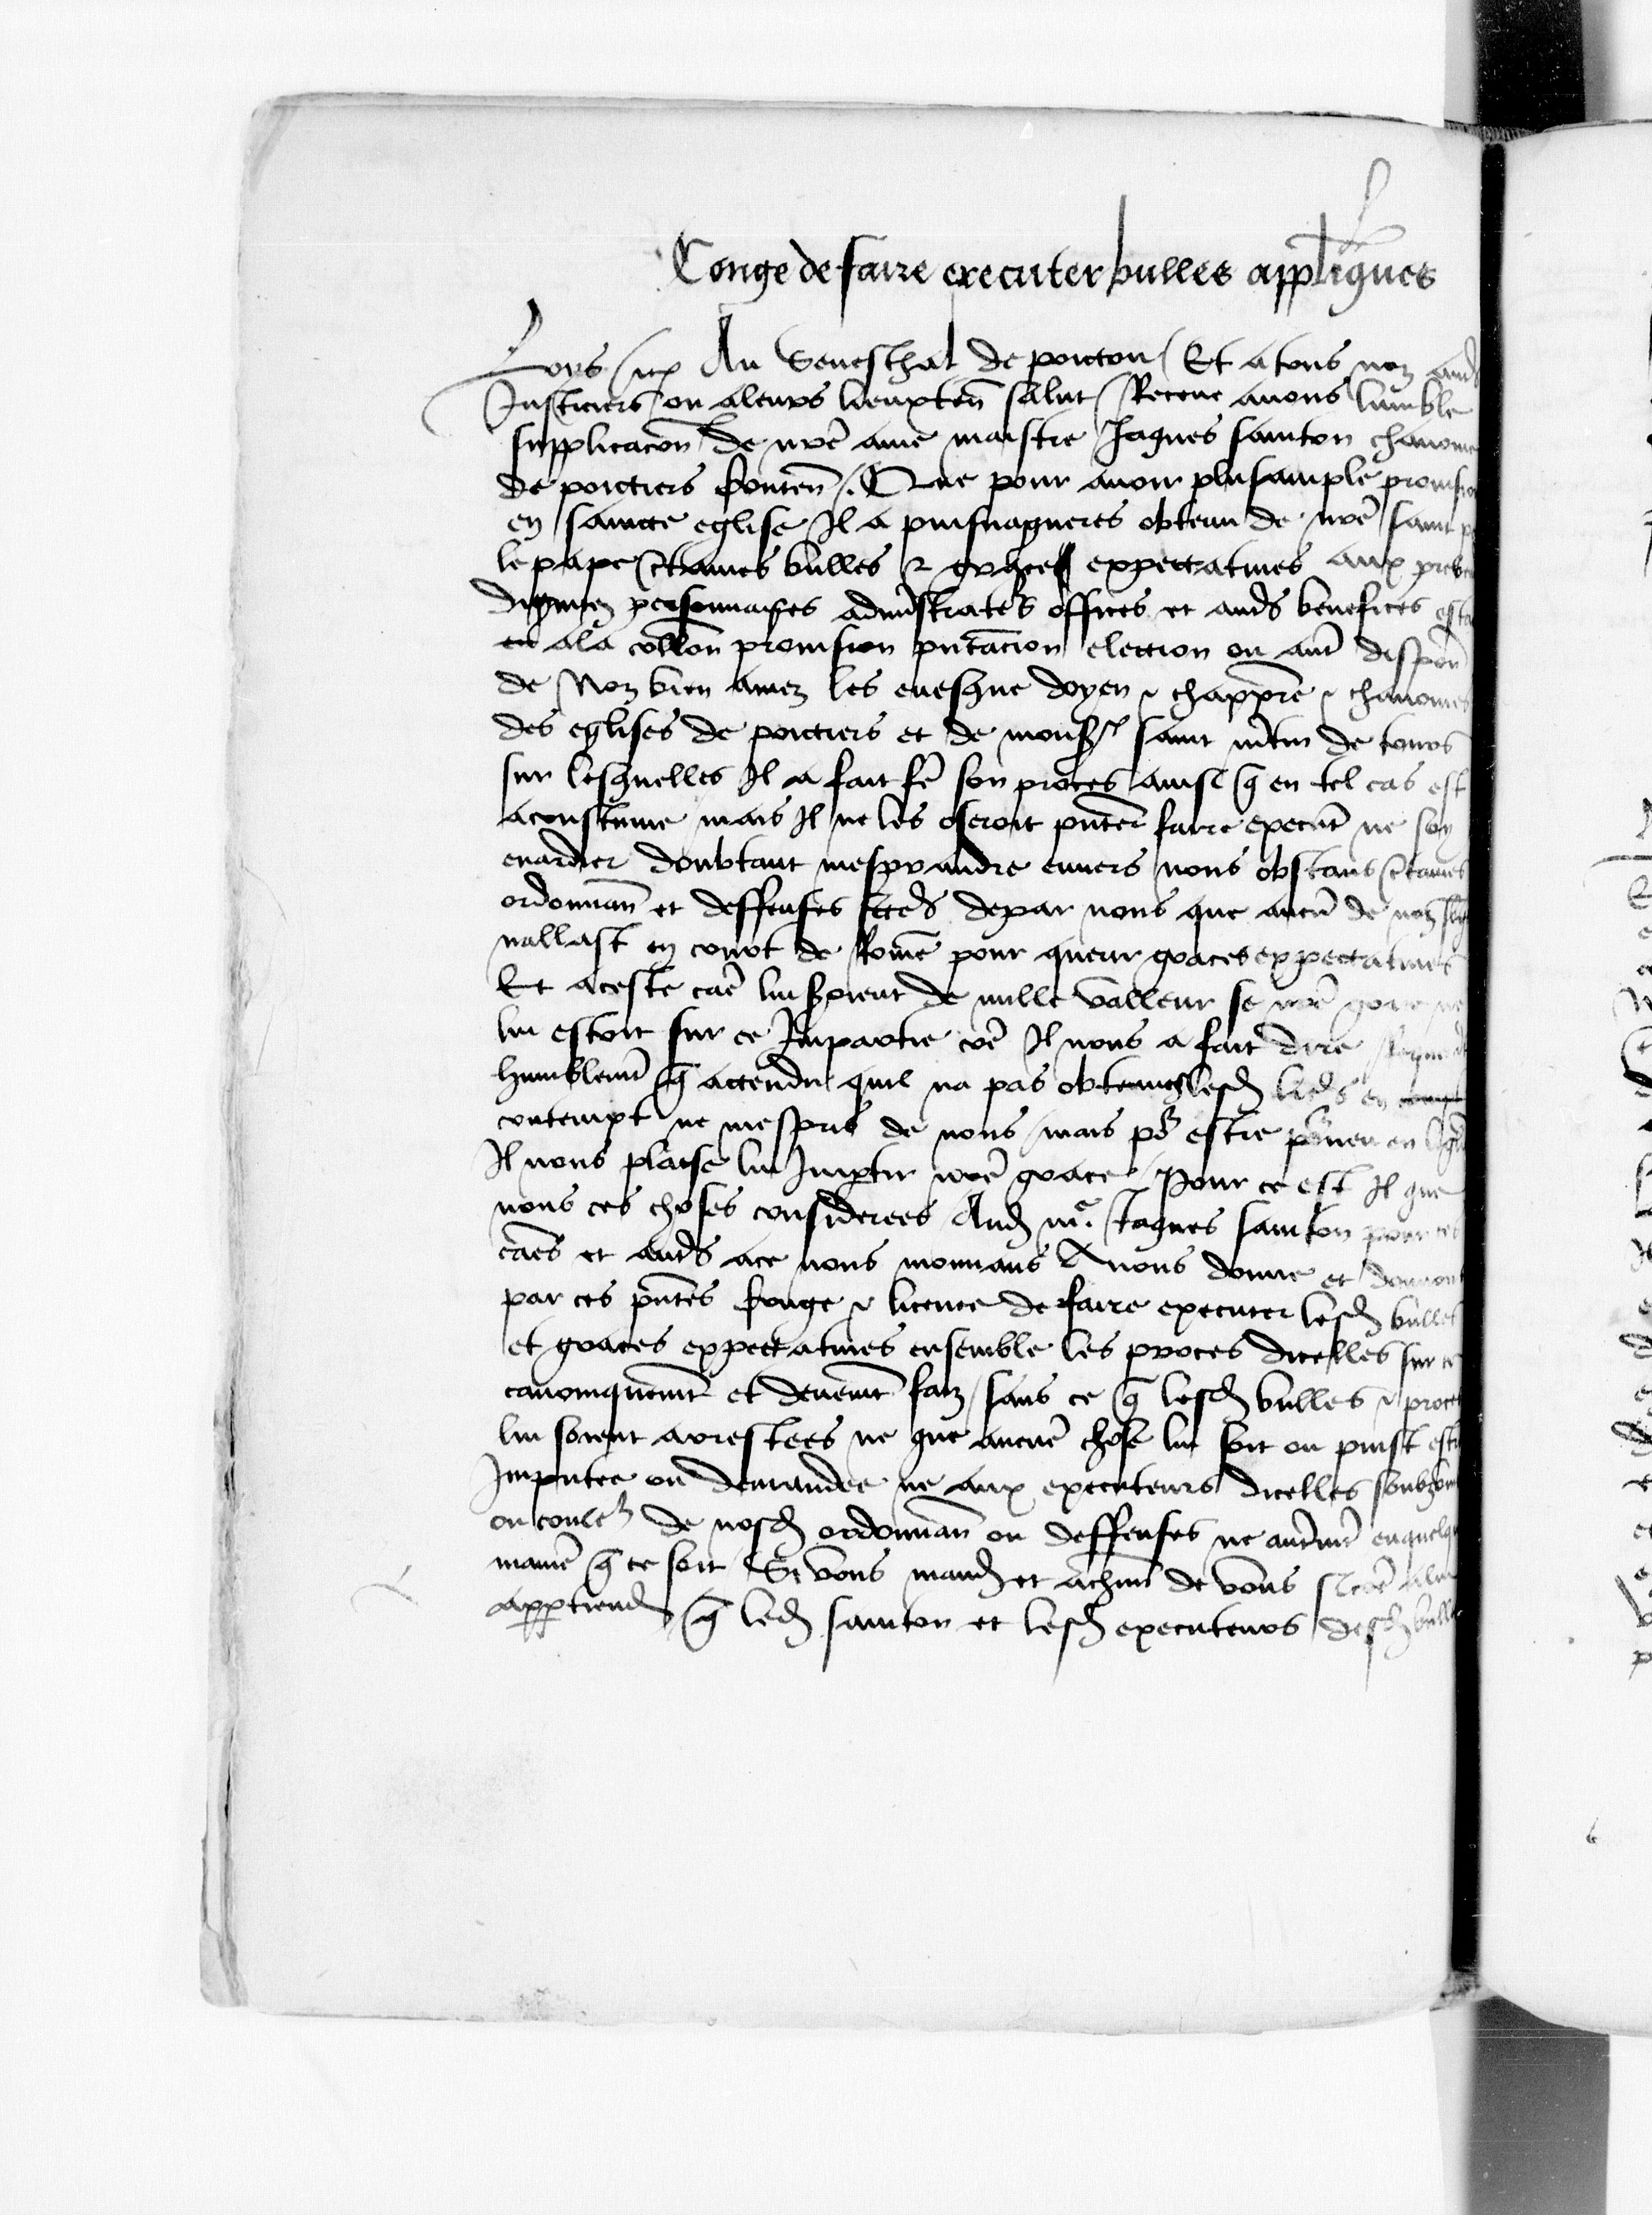 Conge de faire executer bulles appliques
Loys etc Au Seneschal de poictou Et a tous noz auts
Justiciers ou a leurs lieuxten salut Receue avons lumble
supplicacon de nre ame maistre Jaques santon chanoine
de poictiers conten Que pour avoir plusample provision
en saincte eglise Il a puisnagueres obtenu de nre saint pe
le pape ctaines bulles & graces expectatives aux preben
dignitez personnaiges adminstratos offices et auts benefices esta
en a la collon provision pntacion election ou aut dispon
de Noz bien amez les evesque doyen & chappre & chanoines
des eglises de poictiers et de monsr saint mtin de tours
sur lesquelles Il a fait fe son proces ainsi q en tel cas est
acoustume mais Il ne les oseroit pnter faire execut ne soy
enardier doubtant mesprandre envers nous obstans ctaines
ordonnan et deffenses fctes depar nous que aucu de noz
nallast en court de Rome pour querir graces expectatives
Et a ceste cae lui sroient de nulle valleur se nre grace ne
lui estoit sur ce Impartie coe Il nous a fait dire
humblemt q actendu quil na pas obtenues lesd en
contempt ne mespris de nous mais po estre pourveu en
Il nous plaise lui Impartir nre grace Pour ce est Il que
nous ces choses considerees Aud me Jaques santon pour ces
caes et auts a ce nous mouvans Avons donne et donnons
par ces pntes conge & licence de faire executer lesd bulles
et graces expectatives ensemble les proces dicelles sur ce
canoniquemt et deuemt faiz sans ce q lesd bulles & proces
lui soient arrestees ne que aucue chose lui soit ou puist estre
Imputee ou demandee ne aux executeurs dicelles soubz
ou couler de nosd ordonnan ou deffenses ne autmt en quelqu
manie q ce soit Si vous mand et a chun de vous si coe a lui
apptiend q led santon et lesd executeurs desd bulles